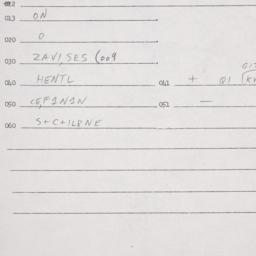 012
013 ON
020 O
030 ZAVI,SES (009
013
040 HENTL 041 + Q1 (K
050 CE,F1N1N 051 —
060 S+C+ILPNE